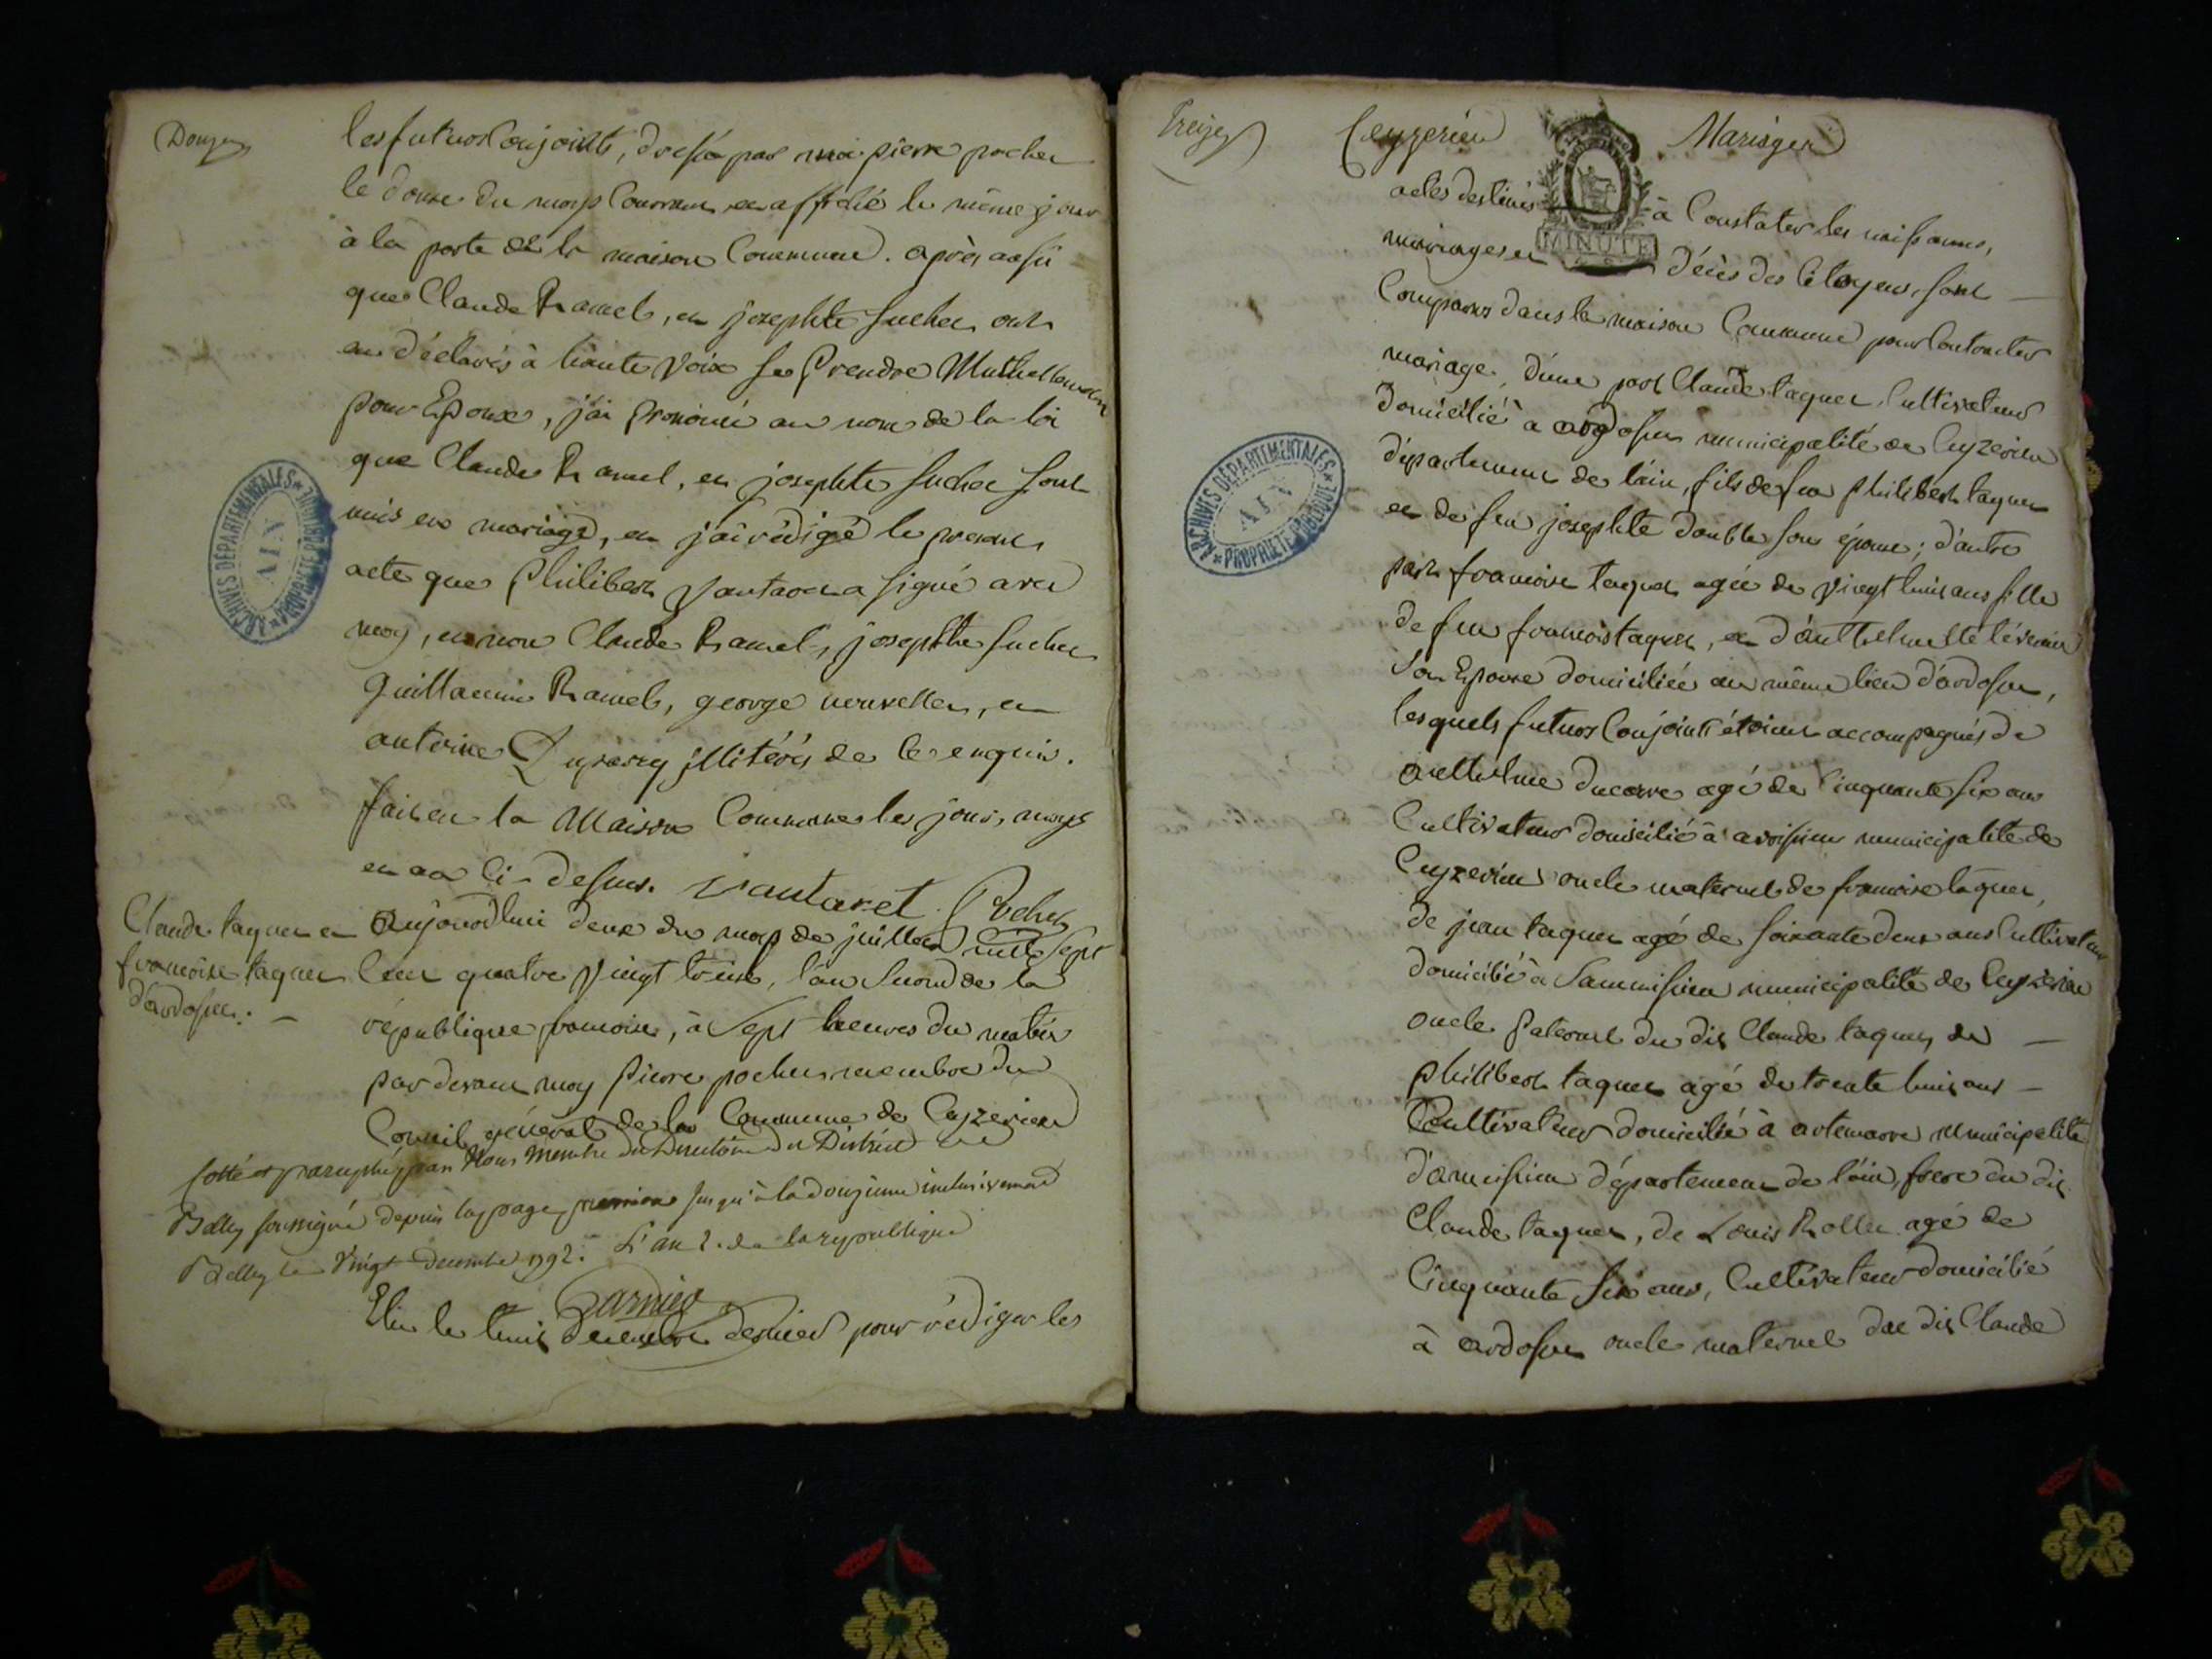 Douze
les futurs Conjoints, dressé par moi pierre pochet
le douze du moys Courrant et affiché le même jour
à la porte de la maison Commune. après aussi
que Claude Ramel, et josephte suchet ont
eu déclarés à haute voix se Prendre Mutuellement
pour Epoux, j'ai Prononcé au nom de la loi
que Claude Ramel, et josephte suchet sont
unis en mariage, et j'ai rédigé le present
acte que Philibert Vantaret a signé avec
moy, et non Claude Ramel, josephte suchet
Guillaume Ramel, george nouvellet, et
antoine illitérés de ce enquis.
fait en la Maison Commune les jour, moys
et an Ci-dessus. Vantaret Pochet
Claude taquet et
francoise taquet
d'ardosset. -
aujourd'hui deux du moys de juillet mille sept
Cent quatre Vingt treise, l'an second de la
république francoise, à sept heures du matin
par devant moy Pierre pochet membre du
Conseil général de la Commune de Ceyzerieu
Cotté et paraphé par Nous Membre du Directoire du District de
Belley soussigné depuis la page premiere jusqu'à la douzieme inclusivement
Belley le Vingt Decembre 1792. L'an 1. de la republique
Garnier
Elu le huit decembre dernier pour rédiger les
ARCHIVES DÉPARTEMENTALES
AIN
PROPRIÉTÉ PUBLIQUE
Treize
Ceyzerieu
Mariages
MINUTE
actes destinés à Constater les naissances,
mariages et décès des Citoyens, sont
Comparus dans la maison Commune pour Contracter
mariage, d'une part Claude taquet, Cultivateur
domicilié à ardosset municipalité de Ceyzerieu
département de l'ain, fils de feu Philibert taquet
et de feu josephte double son épouse; d'autre
part francoise taquet agée de vingt huit ans fille
de feu francois taquet, et d'anthelmette
son Epouse domiciliée au même lieu d'ardosset,
lesquels futurs Conjoints étoient accompagnés de
anthelme ducarre agé de Cinquante six ans
Cultivateur domicilié à avoisieu municipalité de
Ceyzerieu oncle maternel de francoise taquet,
de jean taquet agé de soixante deux ans Cultivateur
domicilié à municipalité de Ceyzerieu
oncle Paternel du dit Claude taquet, de
philibert taquet agé de trente huit ans
Cultivateur domicilié à artemare municipalité
département de l'ain, frere du dit
Claude taquet, de Louis Rollet agé de
Cinquante six ans, Cultivateur domicilié
à ardosset oncle maternel du dit Claude
ARCHIVES DÉPARTEMENTALES
AIN
PROPRIÉTÉ PUBLIQUE